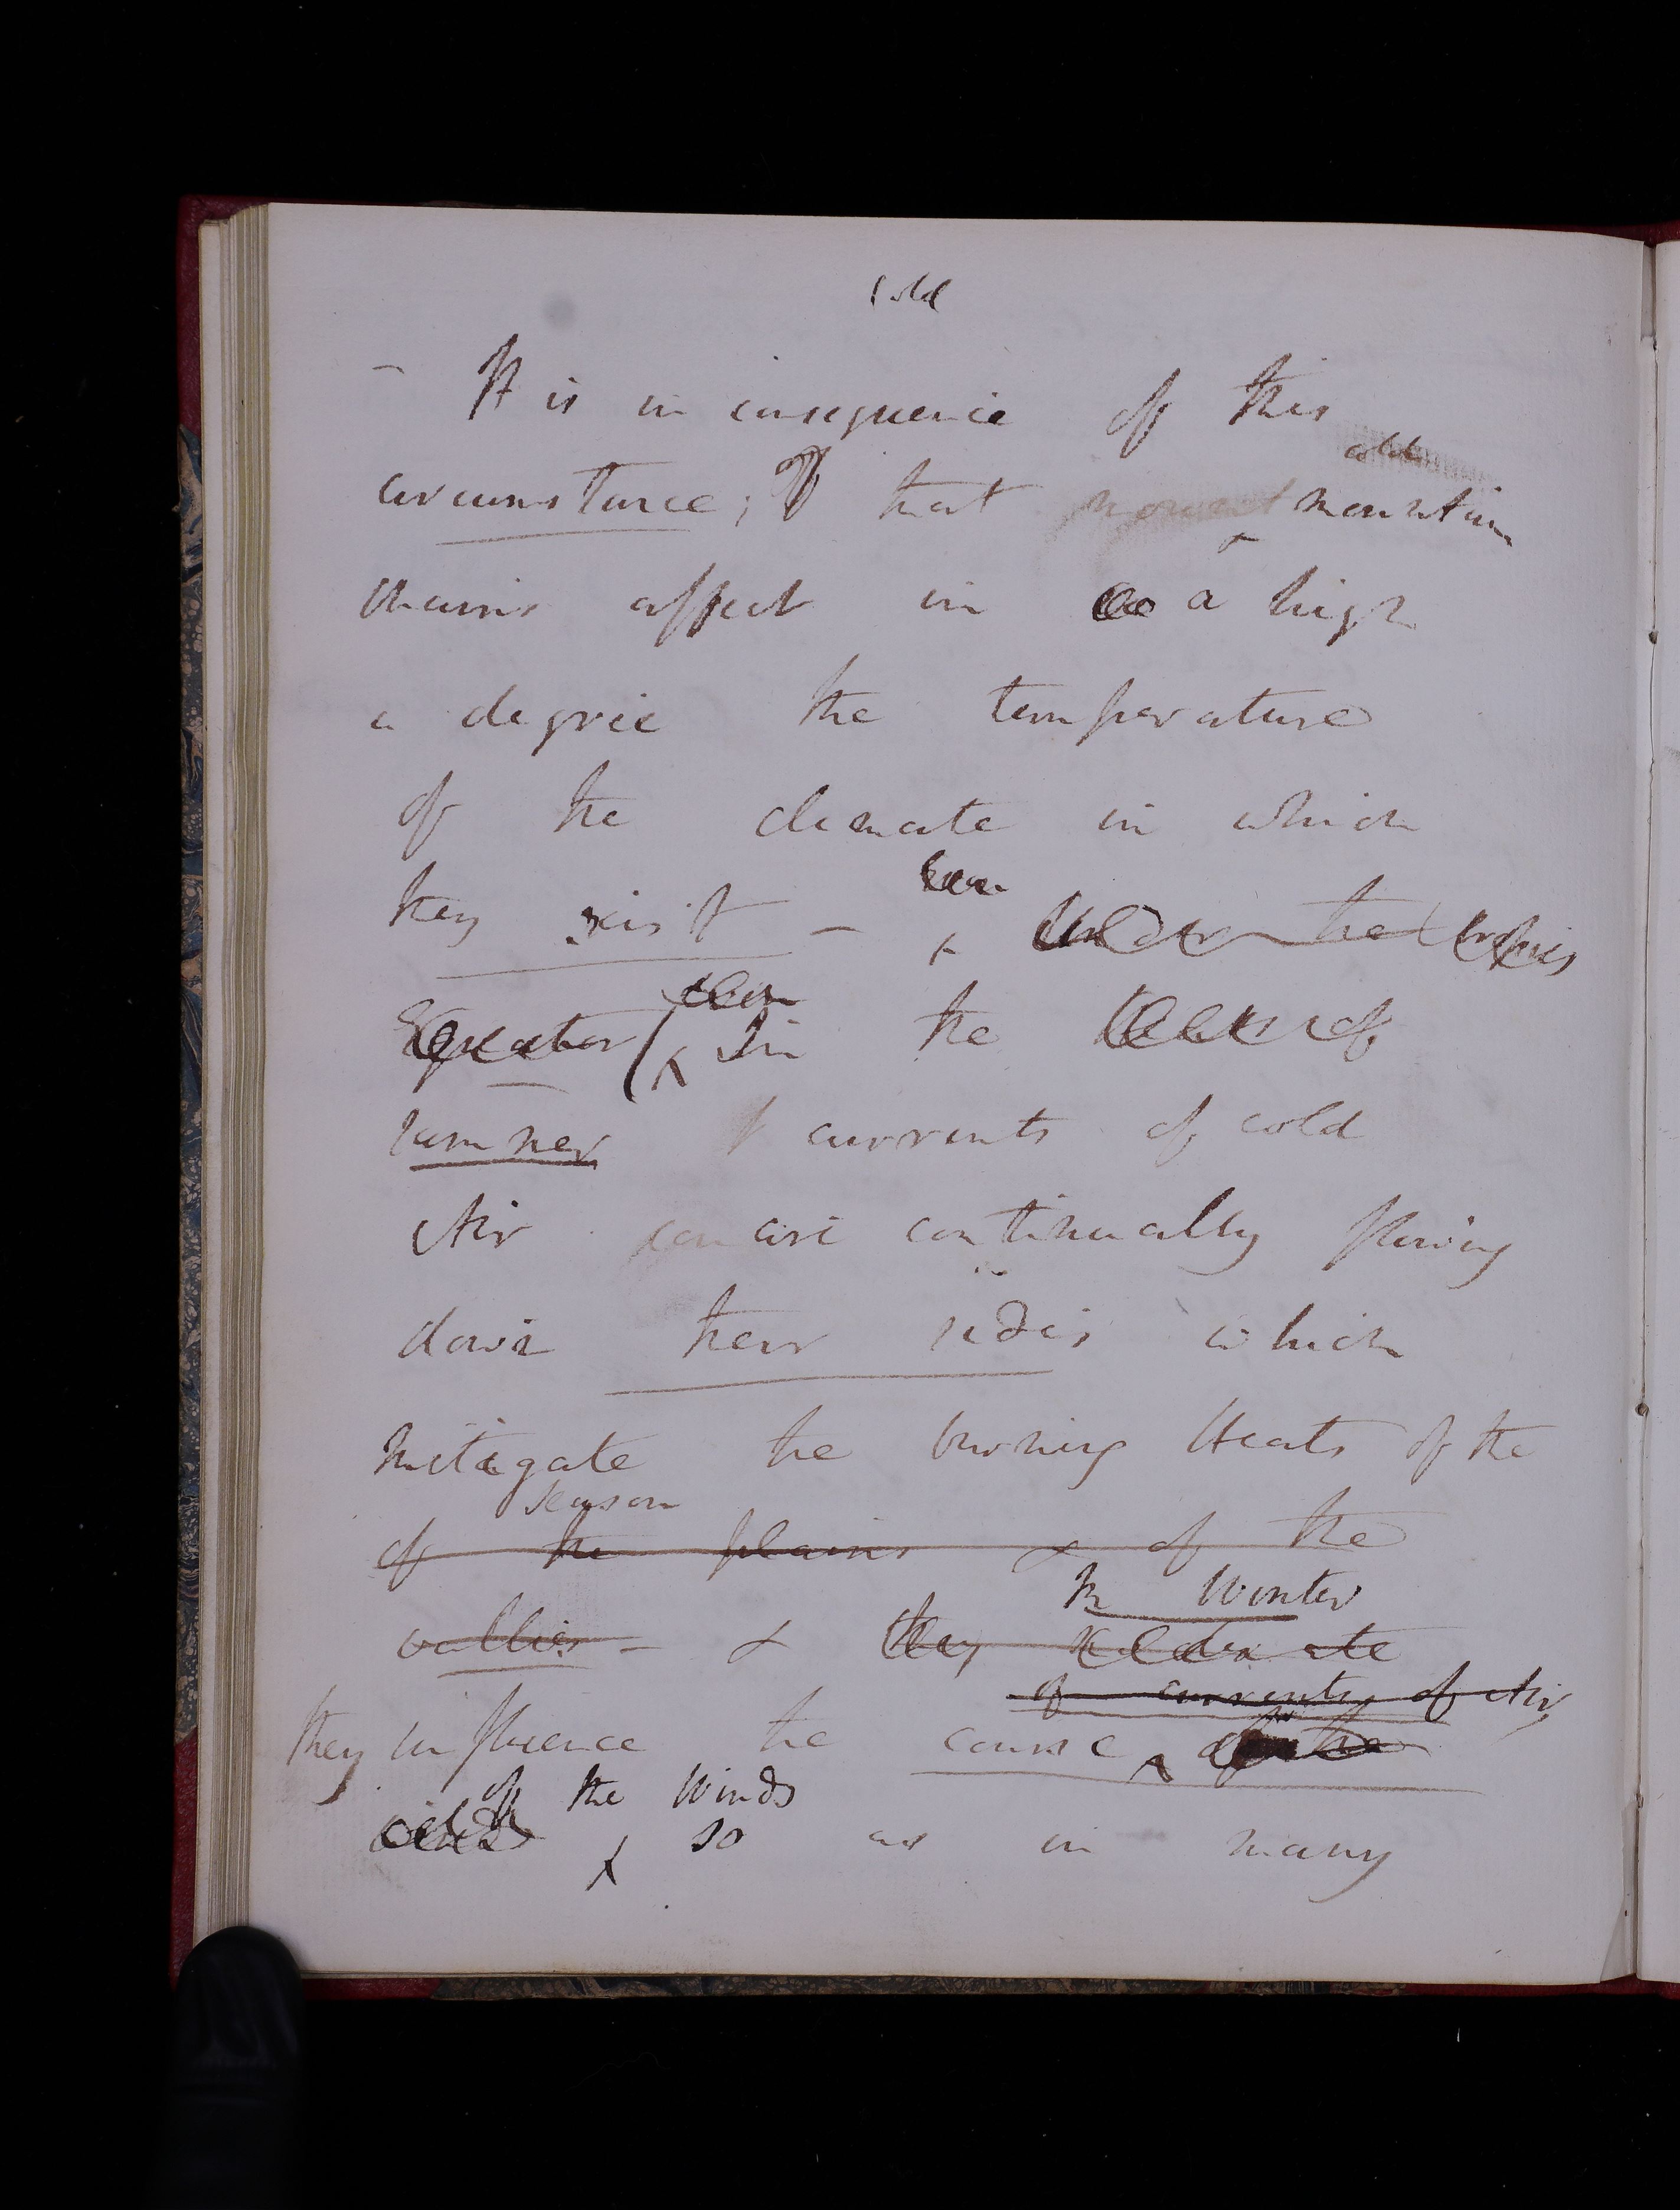 cold
- It is in consequence of this
cold
circumstance; that mountain
chains affect in a high
a degree the temperature
of the climate in which
they exist - Under the tropics
Equator In the
summer currents of cold
Air are continually flowing
down their sides which
mitigate the burning Heats of the
season
of the plains & of the
In Winter
vallies - & they moderate
of currents of Air,
they influence the course of the
of the Winds
winds so as in many